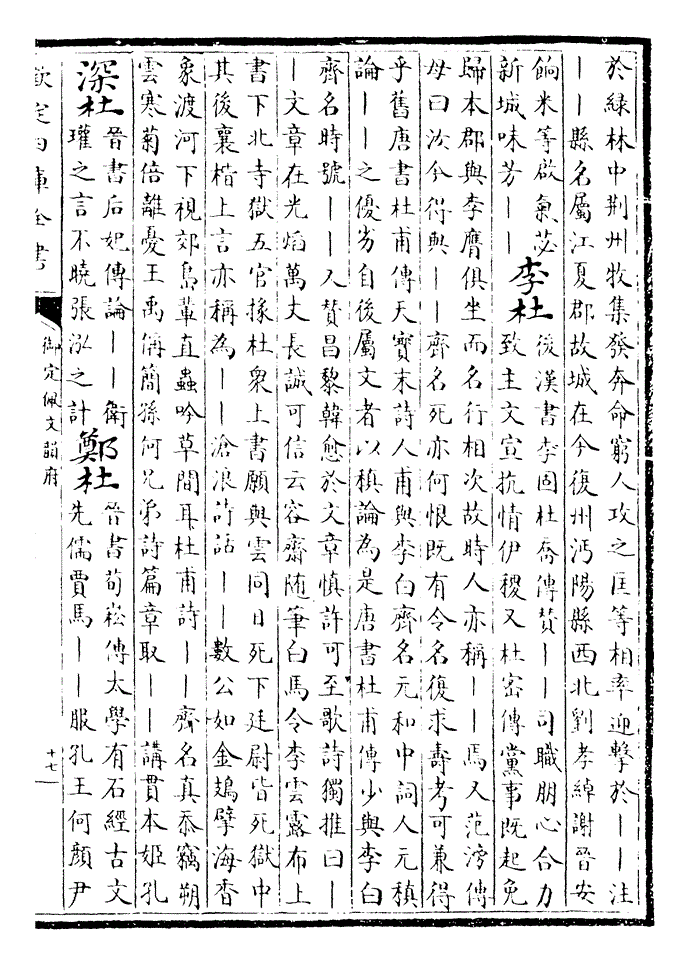 於綠林中荆州牧集發奔命窮人攻之匡等相率迎擊於丨丨注
丨丨縣名屬江夏郡故城在今復州沔陽縣西北劉孝綽謝晉安
餉米等啟氣苾
新城味芳丨丨
李杜
後漢書李固杜喬傳贊丨丨司職朋心合力
致主文宣抗情伊稷又杜密傳黨事既起免
歸本郡與李膺俱坐而名行相次故時人亦稱丨丨焉又范滂傳
母曰汝今得與丨丨齊名死亦何恨既有令名復求壽考可兼得
乎舊唐書杜甫傳天寶末詩人甫與李白齊名元和中詞人元稹
論丨丨之優劣自後屬文者以稹論為是唐書杜甫傳少與李白
齊名時號丨丨又贊昌黎韓愈於文章慎許可至歌詩獨推曰丨
丨文章在光焰萬丈長誠可信云容齋随筆白馬令李雲露布上
書下北寺獄五官掾杜衆上書願與雲同日死下廷尉皆死獄中
其後襄楷上言亦稱為丨丨滄浪詩話丨丨數公如金鳷擘海香
象渡河下視郊島輩直蟲吟草間耳杜甫詩丨丨齊名真忝竊朔
雲寒菊倍離憂王禹偁簡孫何兄弟詩篇章取丨丨講貫本姬孔
深杜
晉書后妃傳論丨丨衛
瓘之言不曉張泓之計
鄭杜
晉書荀崧傳太學有石經古文
先儒賈馬丨丨服孔王何顔尹
欽定四庫全書
御定佩文韻府
十七